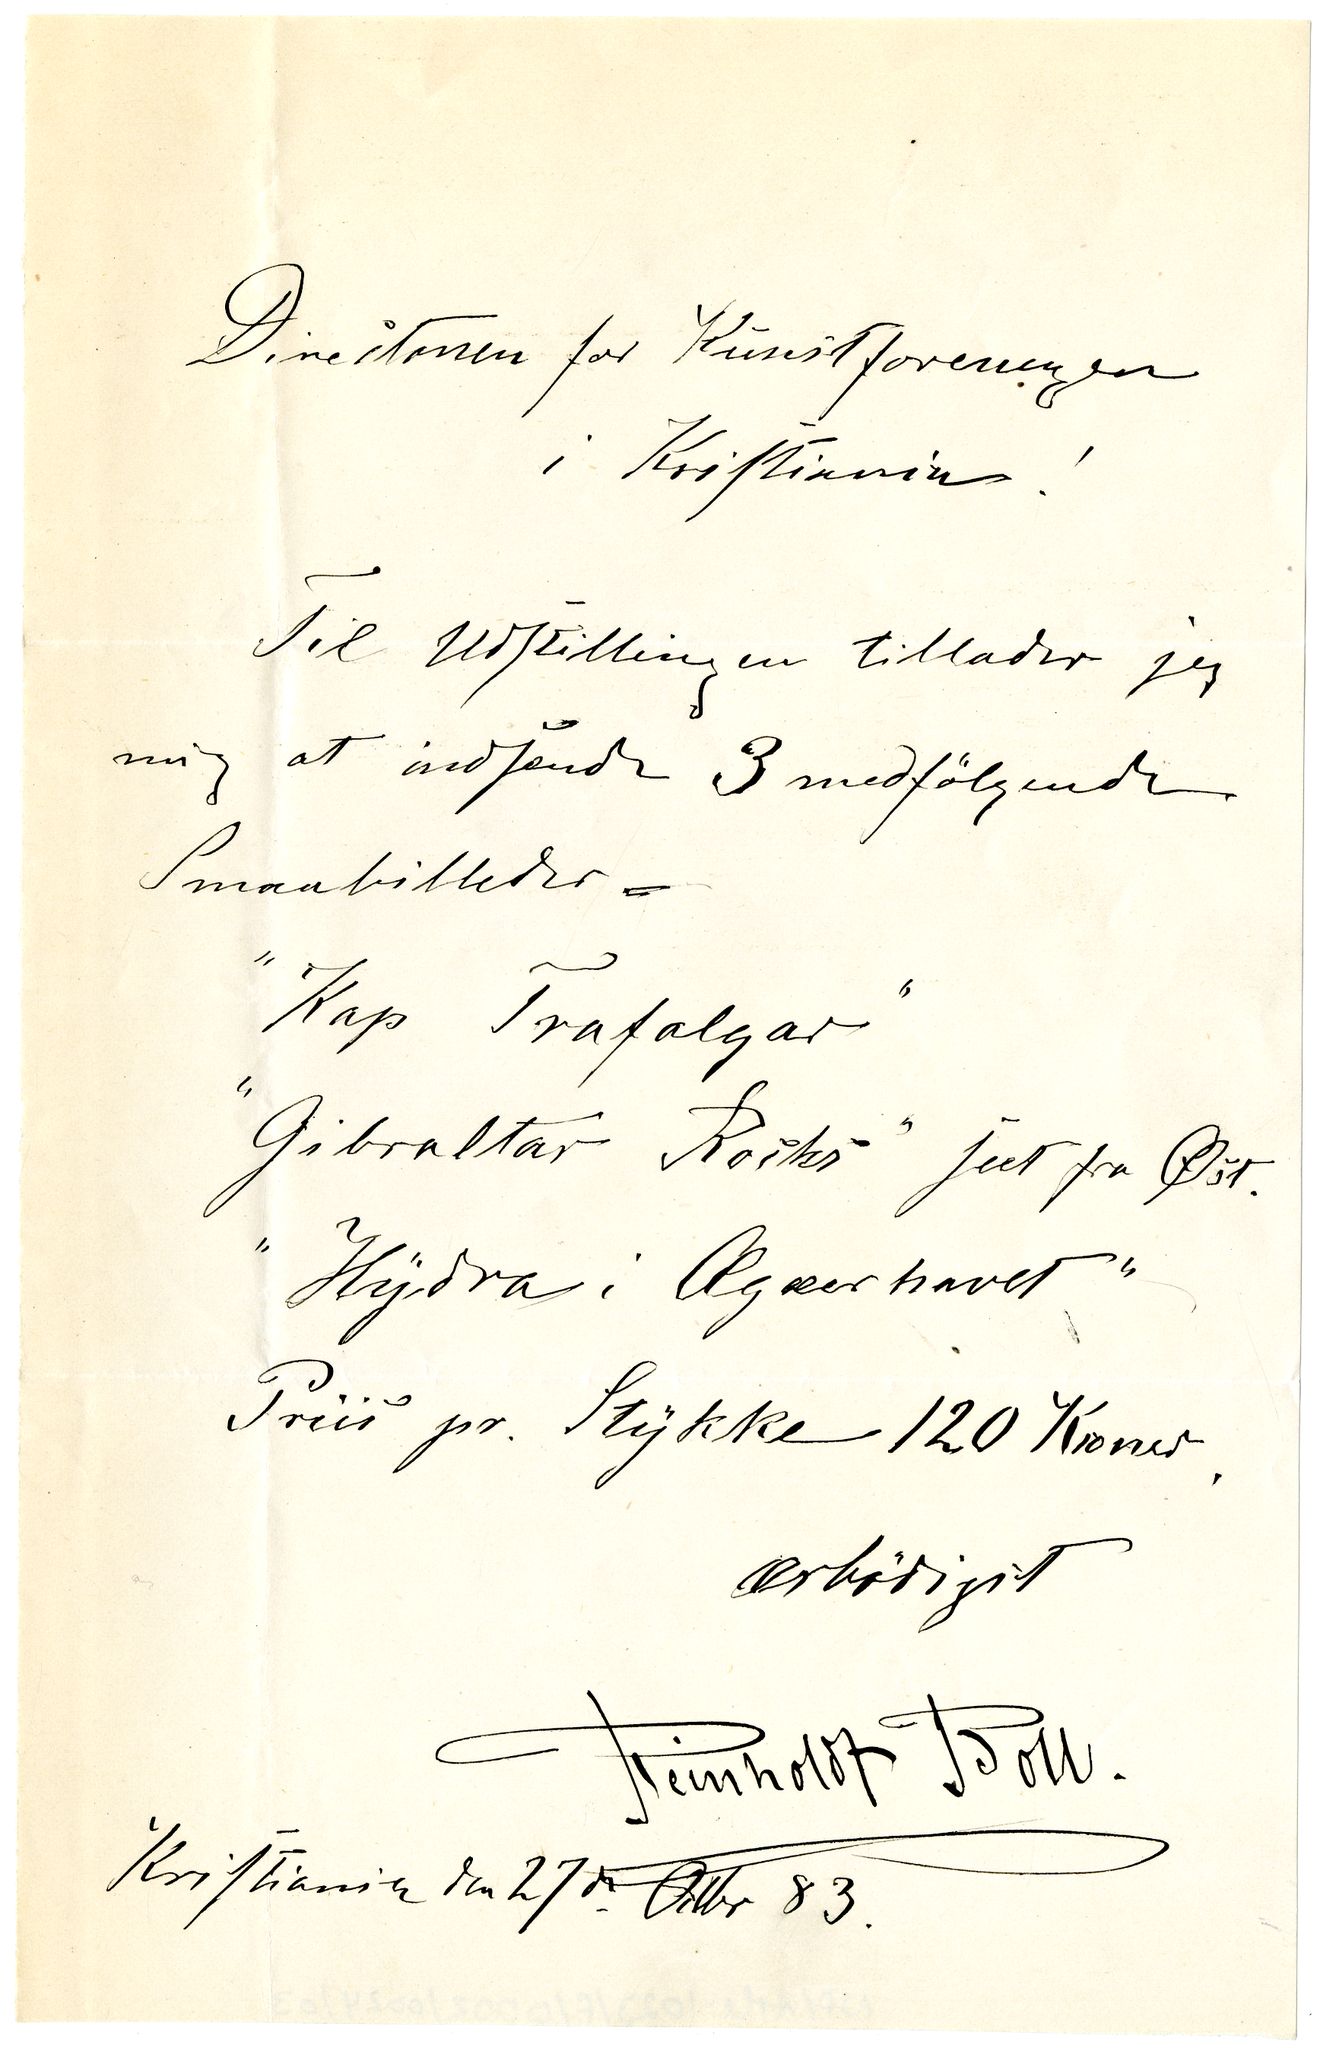 Directionen for Kunstforeningen
i Kristiania!
Til Udstillingen tillader jeg
mig at indsende 3 medfölgende
Smaabilleder =
"Kap Trafalgar"
"Gibraltar Rocks" seet fra Øst.
"Hÿdra i Ægæerhavet"
Priis pr. Stÿkke 120 Kroner.
ærbödigst
Reinholdt Boll.
Kristiania den 27de Octbr 83.